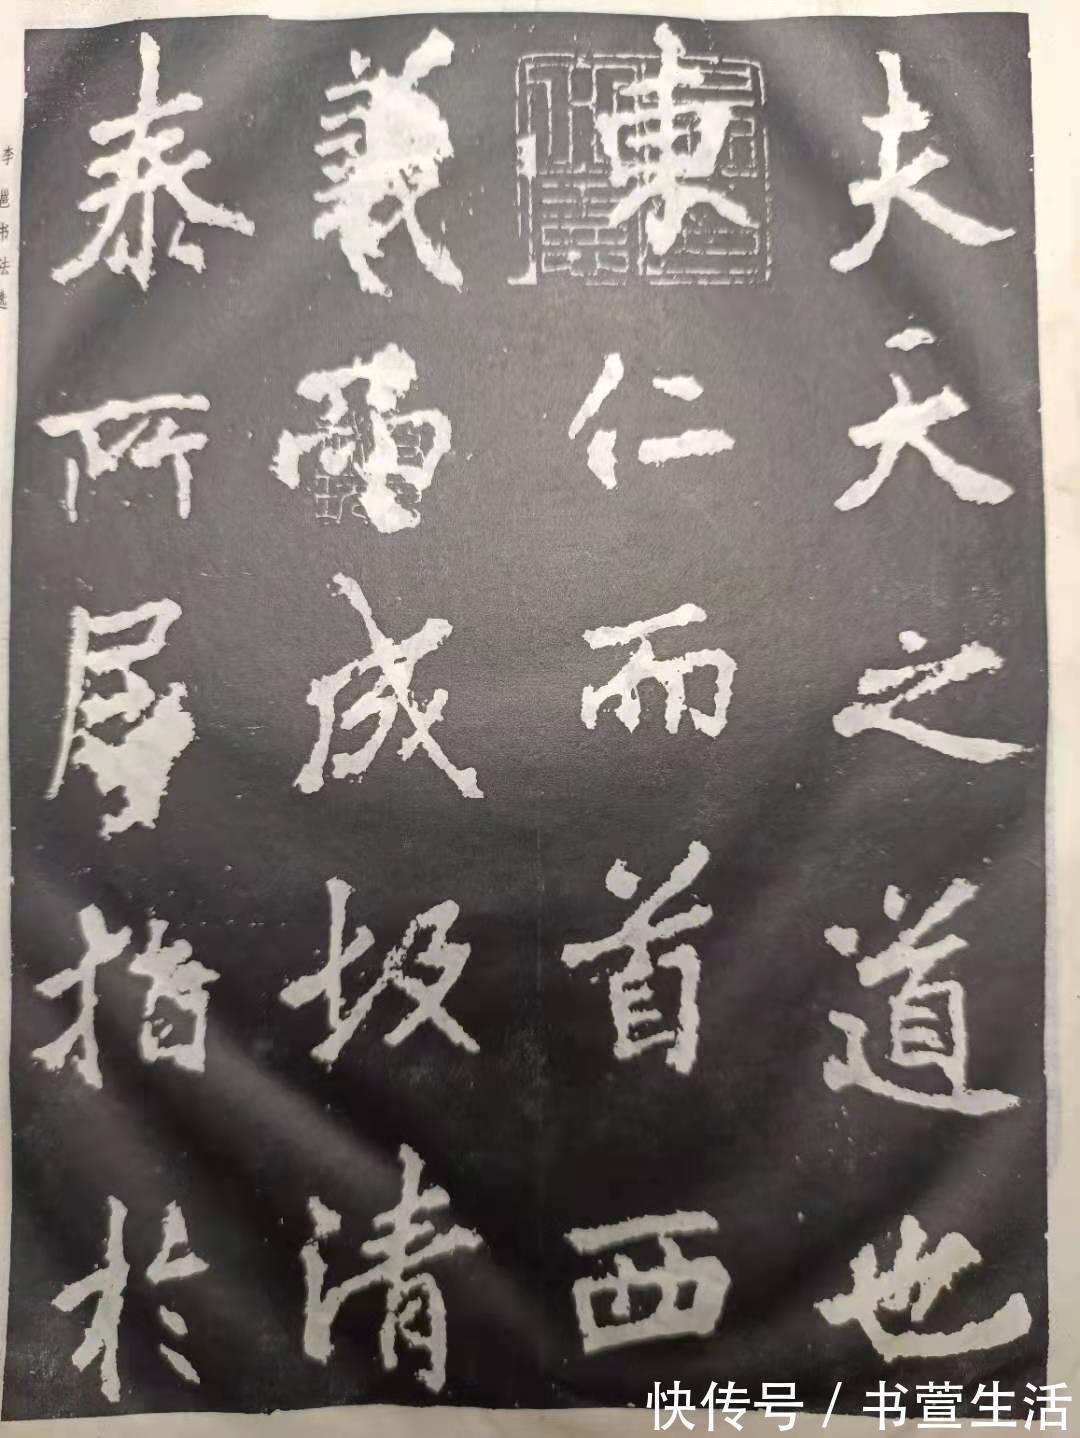 夫天之道也
東仁而首西
義成故清
泰所居指於
李邕书法选
快传号 / 书萱生活